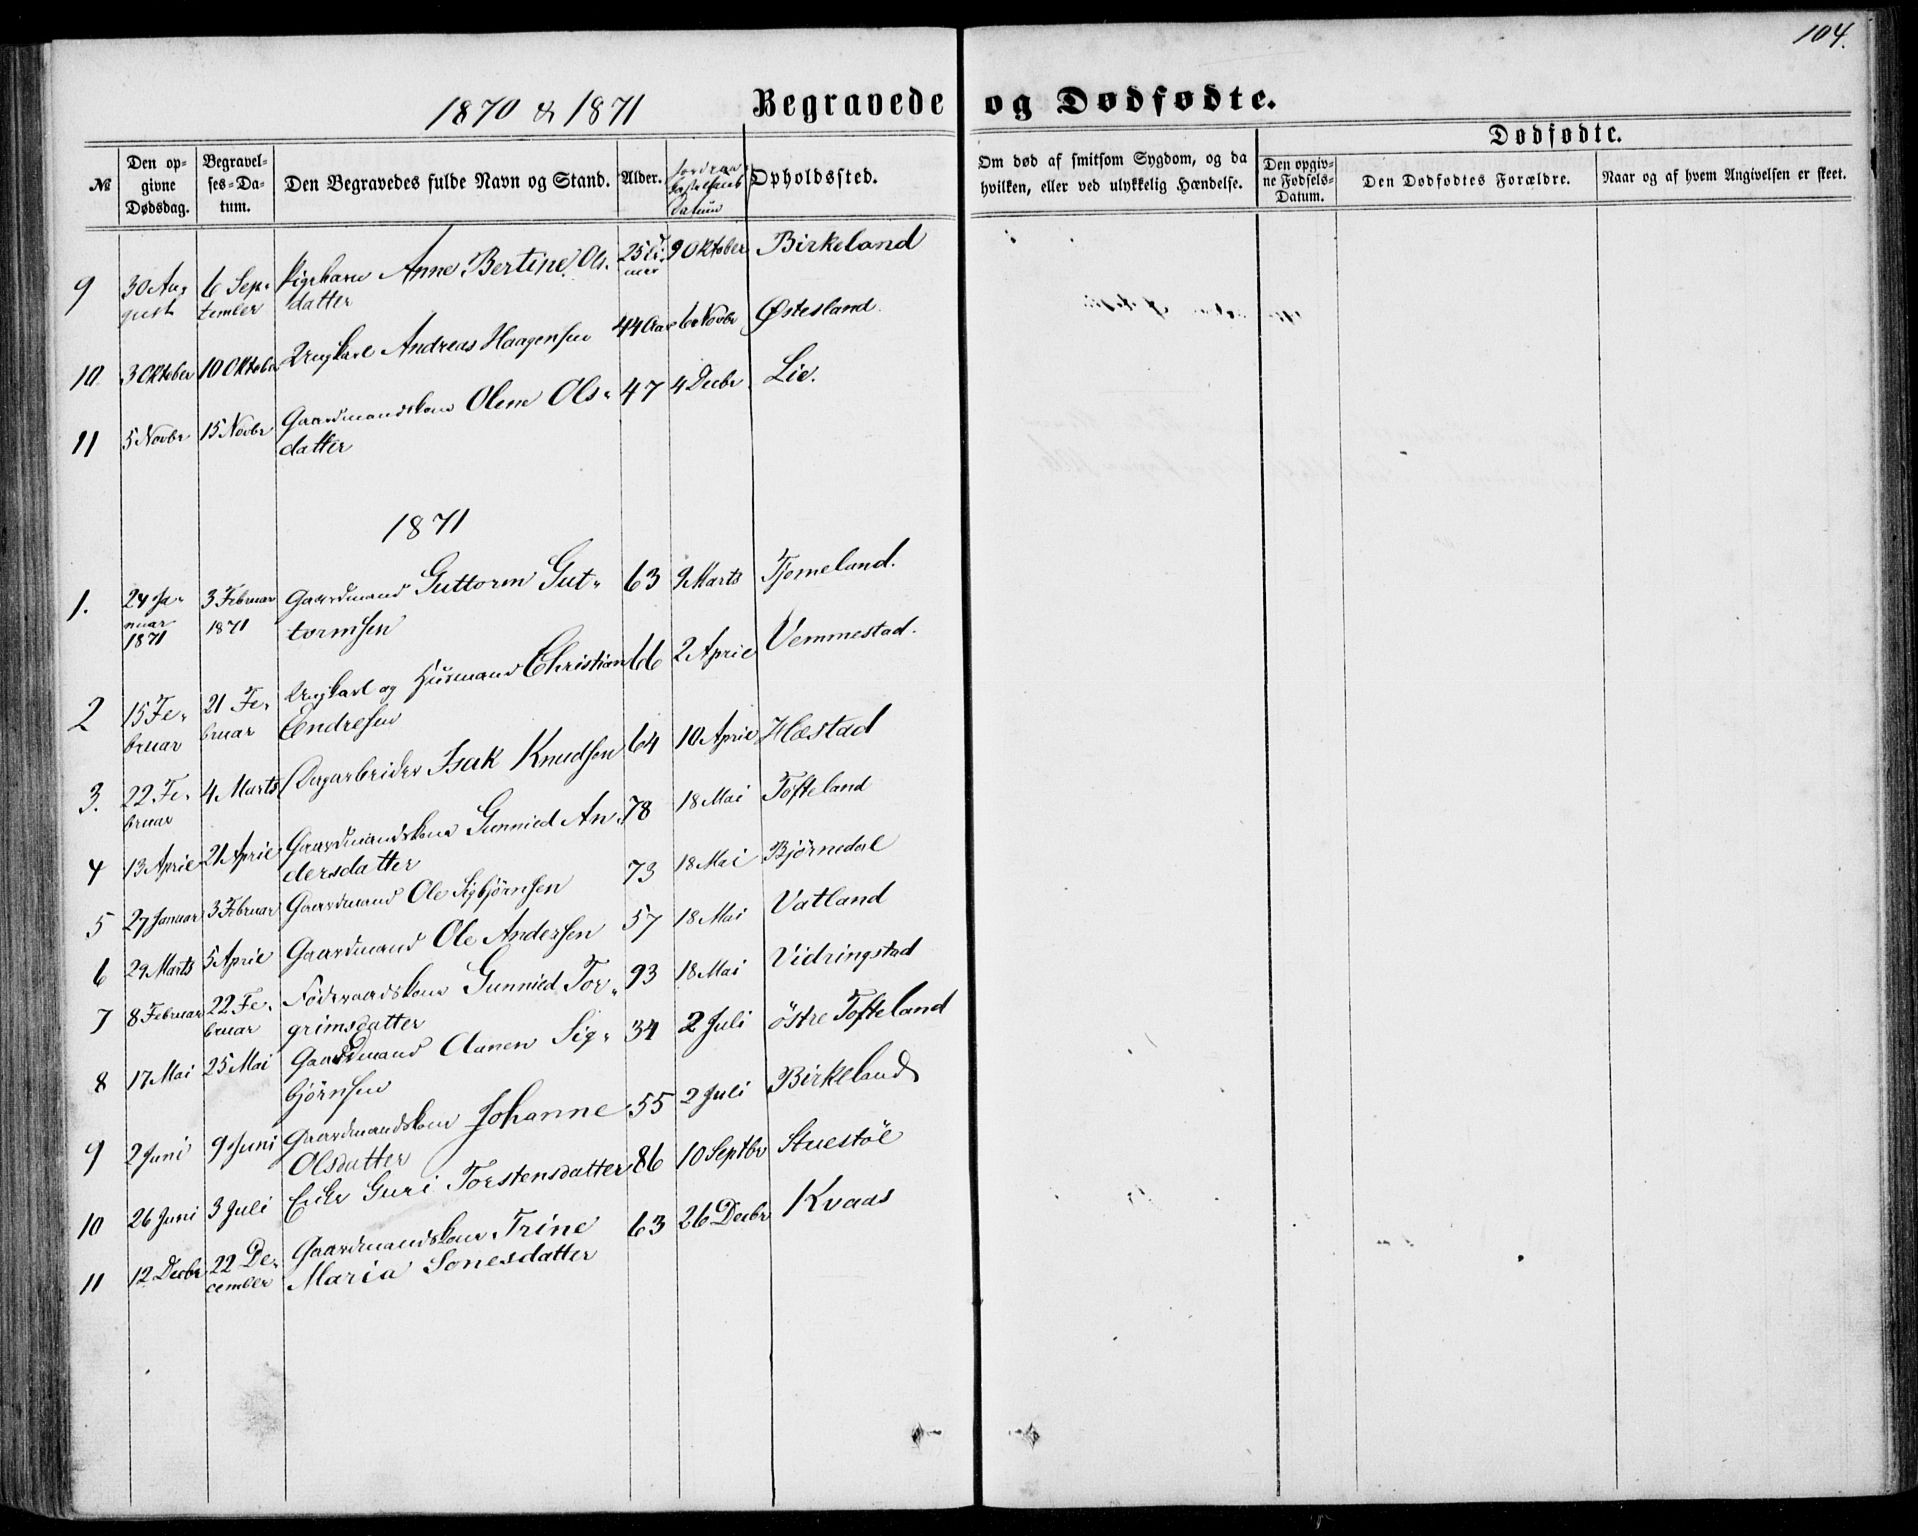 104.
1870 & 1871 Begravede og Dødfødte.
Dødfødte.
№ Den opgivne Dødsdag. Begravelses-Datum. Den Begravedes fulde Navn og Stand. Alder. Datum Opholdssted. Om død af smitsom Sygdom, og da hvilken, eller ved ulykkelig Hændelse. Den opgivne Fødsels-Datum. Den Dødfødtes Forældre. Naar og af hvem Angivelsen er skeet.
9 30 August 6 September Pigebarn Anne Bertine Ols-datter 25 Timer 9 Oktober Birkeland
10. 3 Oktober 10 Oktober Ungkarl Andreas Haagensen 44 Aar 6 Novbr Østesland.
11 5 Novbr 15 Novbr Gaardmandskone Olene Ols-datter 47 4 Decbr. Lie.
1871
1. 24 Januar 1871 3 Februar 1871 Gaardmand Guttorm Guttormsen 63 9 Marts Tjomeland.
2 15 Februar 21 Februar Ungkarl og Husmand Christian Endresen 66 2 April Vemmestad.
3. 22 Februar 4 Marts Dagarbeider Isak Knudsen 64 10 April Hæstad
4 13 April 21 April Gaardmandskone Gunnild Andersdatter 78 18 Mai Tofteland
5 27 Januar 3 Februar Gaardmand Ole Sigbjørnsen 73 18 Mai Bjørnedal
6 29 Marts 5 April Gaardmand Ole Andersen 57 18 Mai Vatland
7 8 Februar 22 Februar Føderaadskone Gunnild Torgrimsdatter 93 18 Mai Vidringstad
8 17 Mai 25 Mai Gaardmand Aanen Sigbjörnsen 34 2 Juli östre Tofteland
9 2 Juni 9 Juni Gaardmandskone Johanne Olsdatter 55 2 Juli Birkeland
10 26 Juni 3 Juli Enke Guri Torstensdatter 86 10 Septbr Stuestöl
11 12 Decbr 22 December Gaardmandskone Trine Maria Sonesdatter 63 26 Decbr Kvaas